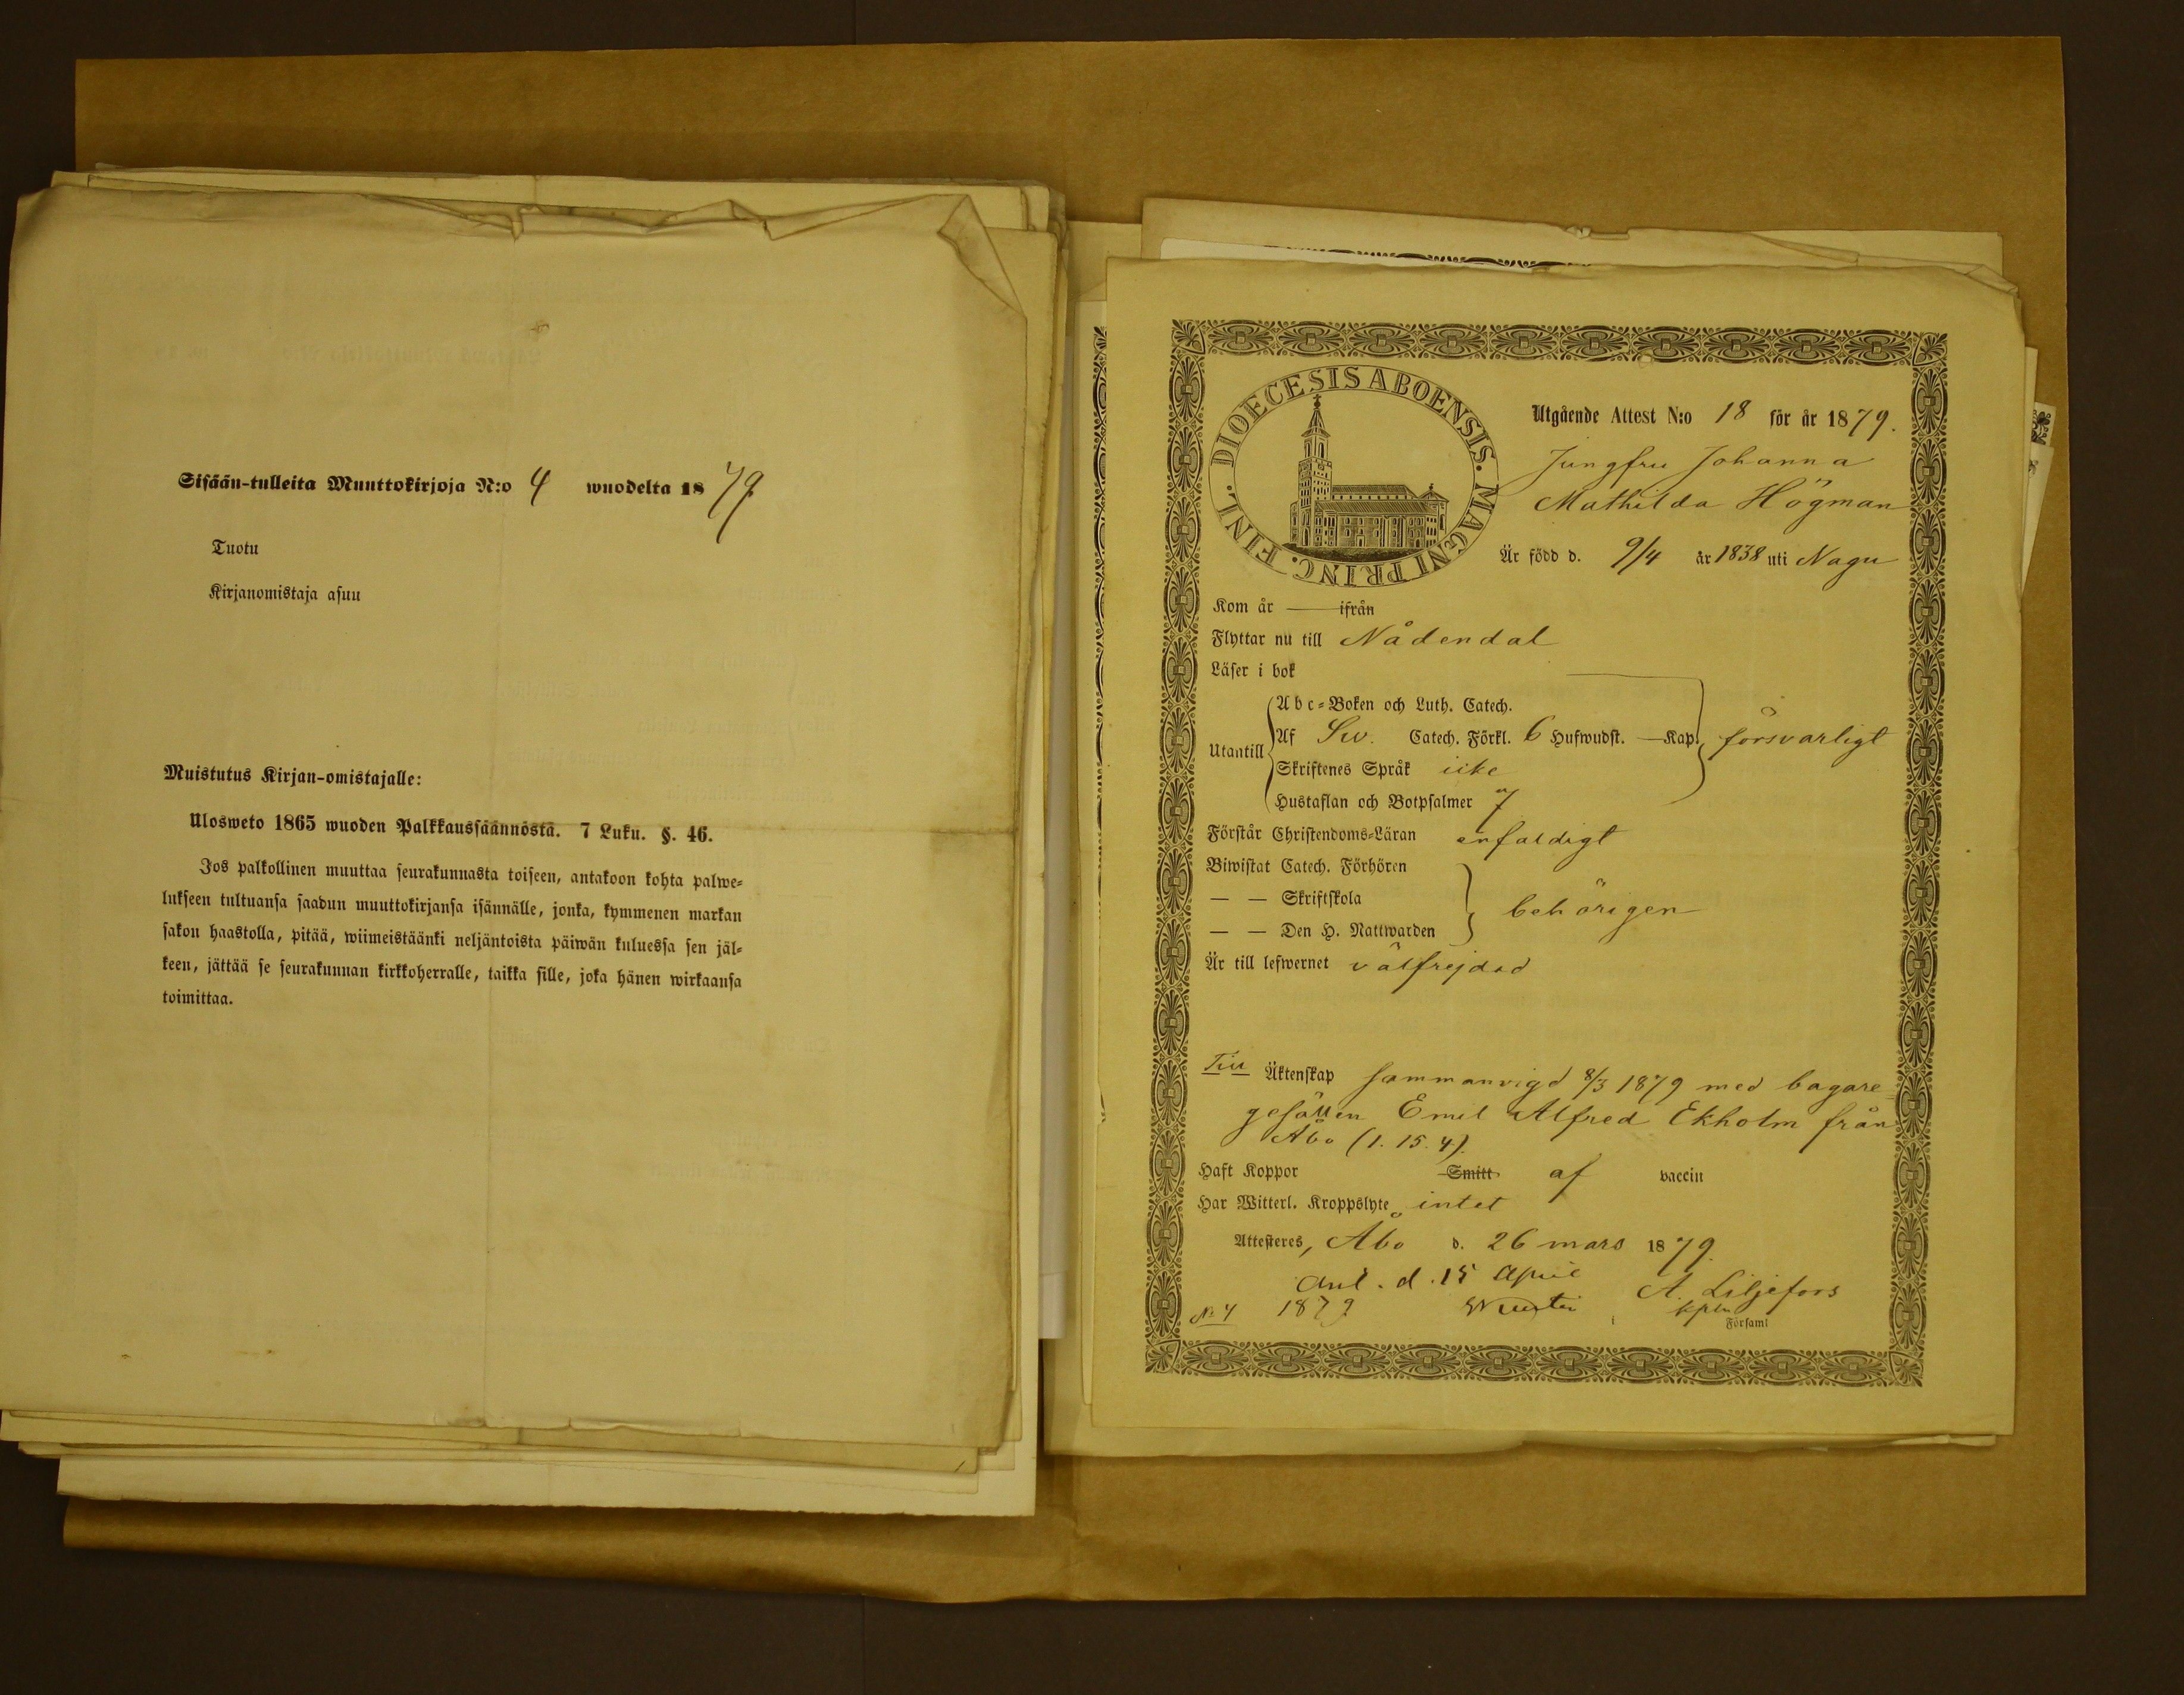 Sisään-tulleita Muuttokirjoja N:o 4 wuodelta 1879
Tuotu
Kirjanomistaja asuu
Muistutus Kirjan-omistajalle:
Ulosweto 1865 wuoden Palkkaussäännöstä. 7 Luku. §. 46.
Jos palkollinen muuttaa seurakunnasta toiseen, antakoon kohta palwe-
lukseen tultuansa saadun muuttokirjansa isännälle, jonka, kymmenen markan
sakon haastolla, pitää, wiimeistäänki neljäntoista päiwän kuluessa sen jäl-
keen, jättää se seurakunnan kirkkoherralle, taikka sille, joka hänen wirkaansa
toimittaa.
DIOECESIS ABOENSIS. MAGNI PRINC. FINL.
Utgående Attest N:o 18 för år 1879.
Jungfru Johanna
Mathilda Högman
Är född d. 9/4 år 1838 uti Nagu
Kom år — ifrån
Flyttar nu till Nådendal
Läser i bok
Utantill
Abc-Boken och Luth. Catech.
Af Sw. Catech. Förkl. 6 Hufwudst. — Kap. försvarligt
Skriftenes Språk icke
Hustaflan och Botpsalmer 7
Förstår Christendoms-Läran enfaldigt
Biwistat Catech. Förhören
— — Skriftskola behörigen
— — Den H. Nattwarden
Är till lefwernet välfrejdad
Till Äktenskap sammanvigd 8/3 1879 med bagare
gesällen Emil Alfred Ekholm från
Åbo (1. 15. 4).
Haft Koppor Smitt af vaccin
Har Witterl. Kroppslyte intet
Attesteres, Åbo d. 26 mars 1879.
Anl. d. 15 April A. Liljefors
No 4 1879 kpln
Församl